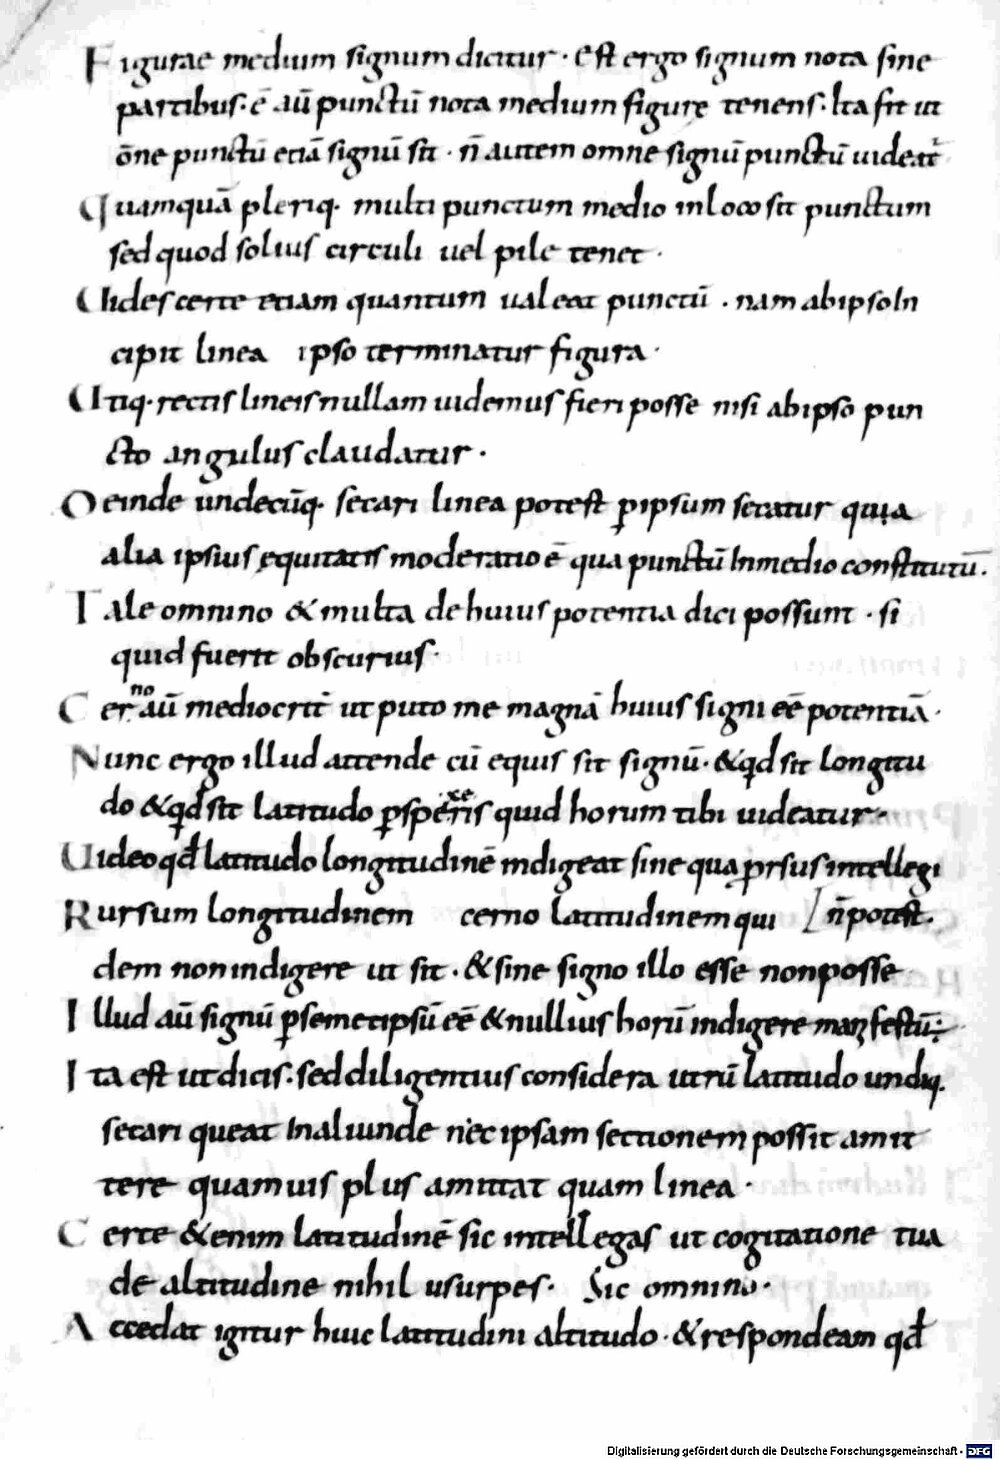 Figurae medium signum dicitur · est ergo signum nota sine
partibus · ē aū punctū nota medium figurę tenens · Ita fit ut
ōne punctū etiā signū sit · n̄ autem omne signū punctū uideat̄
Quamquā pleriq· multi punctum medio in loco sit punctum
sed quod solius circuli uel pile tenet ·
Uides certe etiam quantum ualeat punctū · nam ab ipso In
cipit linea ipso terminatur figura ·
Utiq· rectis lineis nullam uidemus fieri posse nisi ab ipso pun
cto angulus claudatur ·
Deinde undecūq· secari linea potest ꝑ ipsum secatur quia
alia ipsius ęquitatis moderatio ē qua punctū In medio constitutū ·
Tale omnino & multa de huius potentia dici possunt · si
quid fuerit obscurius ·
Cerno aū mediocrit̄ ut puto me magnā huius signi eē potentiā ·
Nunc ergo illud attende cū equis sit signū · & qd sit longitu
do & qd sit latitudo ꝑspexeris quid horum tibi uideatur
Uideo qđ latitudo longitudinē indigeat sine qua ꝓrsus intellegi
Rursum longitudinem cerno latitudinem qui n̄ potest.
dem non indigere ut sit · & sine signo illo esse non posse
Illud aū signū ꝑ semetipsū eē & nullius horū indigere manifestū
Ita est ut dicis · sed diligentius considera utrū latitudo undiq·
secari queat In aliunde nec ipsam sectionem possit amit
tere quamuis plus amittat quam linea ·
Certe & enim latitudinē sic intellegas ut cogitatione tua
de altitudine nihil usurpes · Sic omnino ·
Accedat igitur huic latitudini altitudo · & respondeam qđ
Digitalisierung gefördert durch die Deutsche Forschungsgemeinschaft - DFG